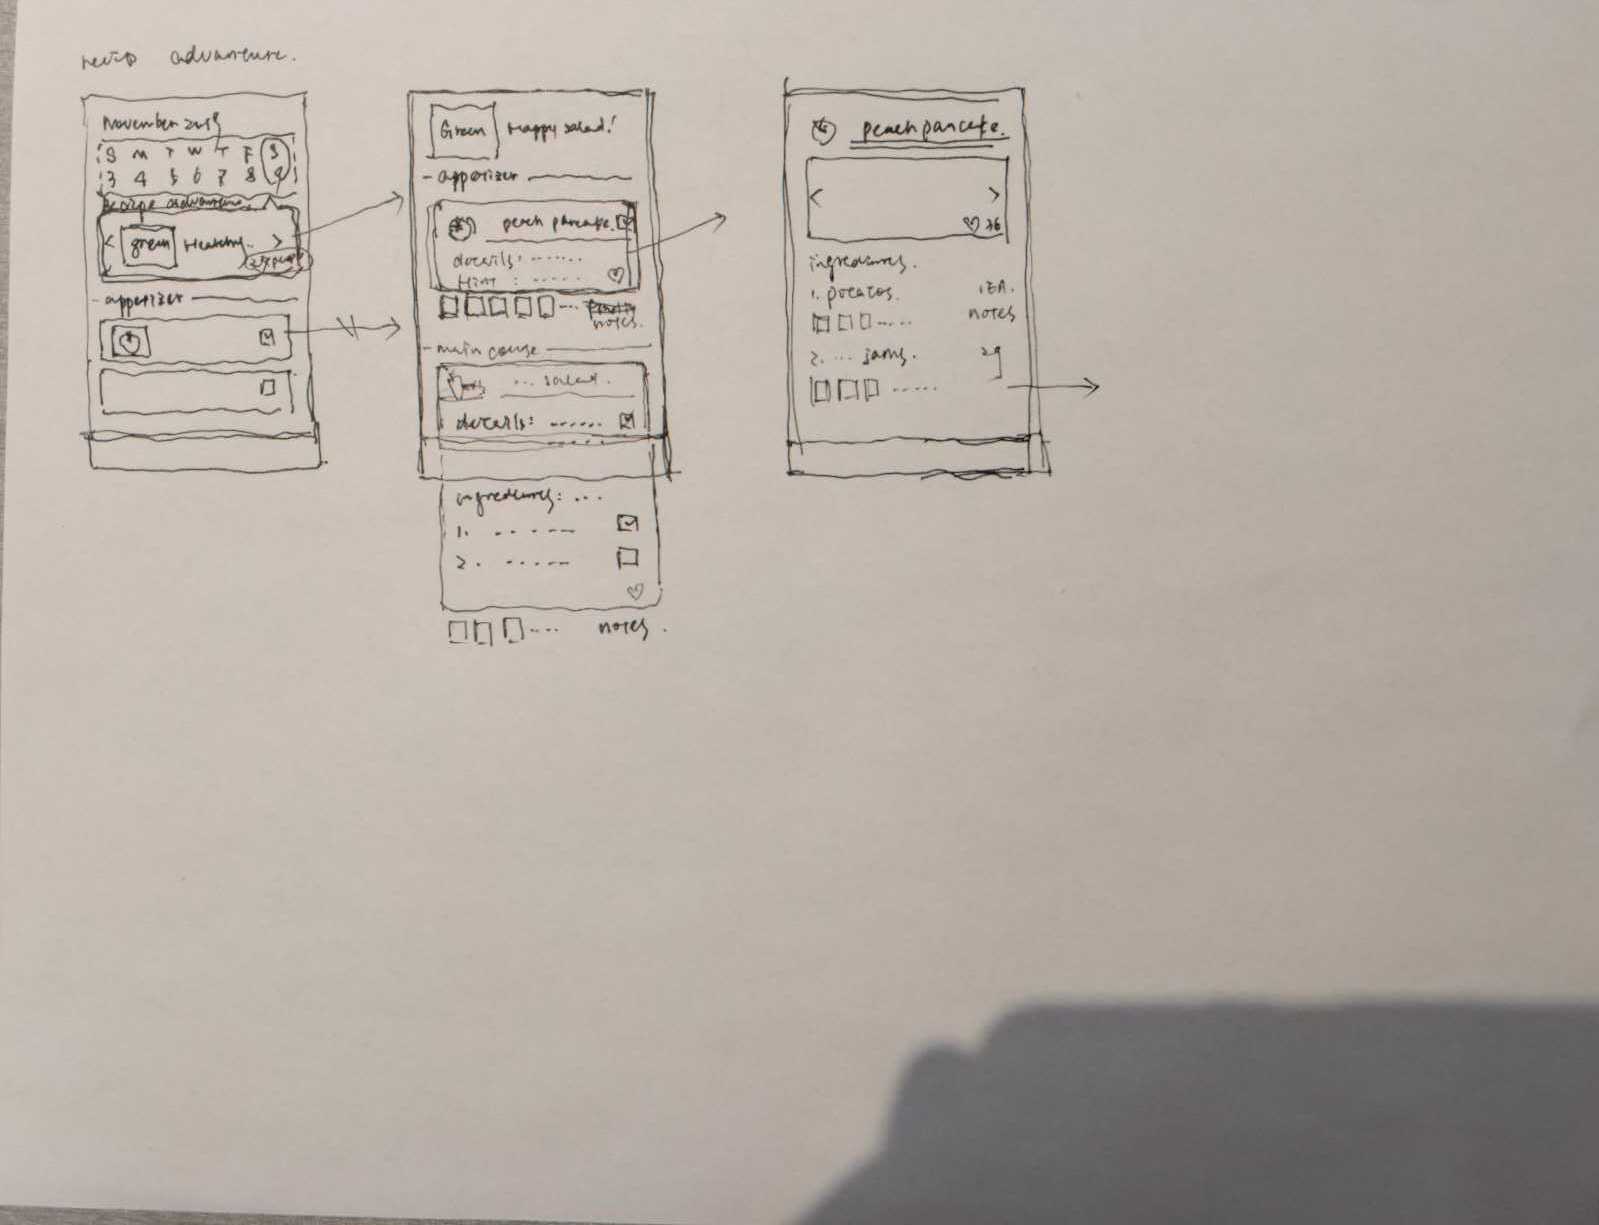 advanture.
November 2019
S M T W T F S
3 4 5 6 7 8 9
Recipe advanture
< green Healthy. >
- appetizer
Green Happy salad!
- appetizer
peach pancake.
details: ......
Hint : .....
.... notes.
- main course
... salad.
details: ......
ingredients: ...
1. .....
2. .....
.... notes.
peach pancake.
< >
36
ingredients.
1. potatos. 1EA.
..... notes
2. ... jams. 2g
.....